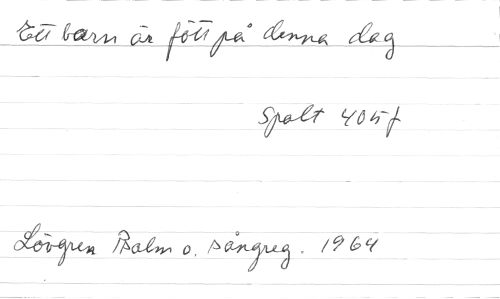 Ett barn är fött på denna dag
Spalt 405f
Lövgren Psalm o. sångreg. 1964